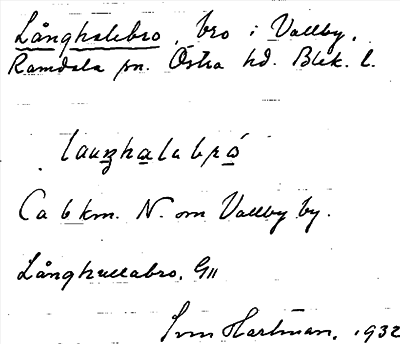 Långhalebro, bro i Vallby,
Ramdala sn. Östra hd. Blek. l.
Ca 6 km. N. om Vallby by.
Långhullabro, G11
Sven Hartman. 1932